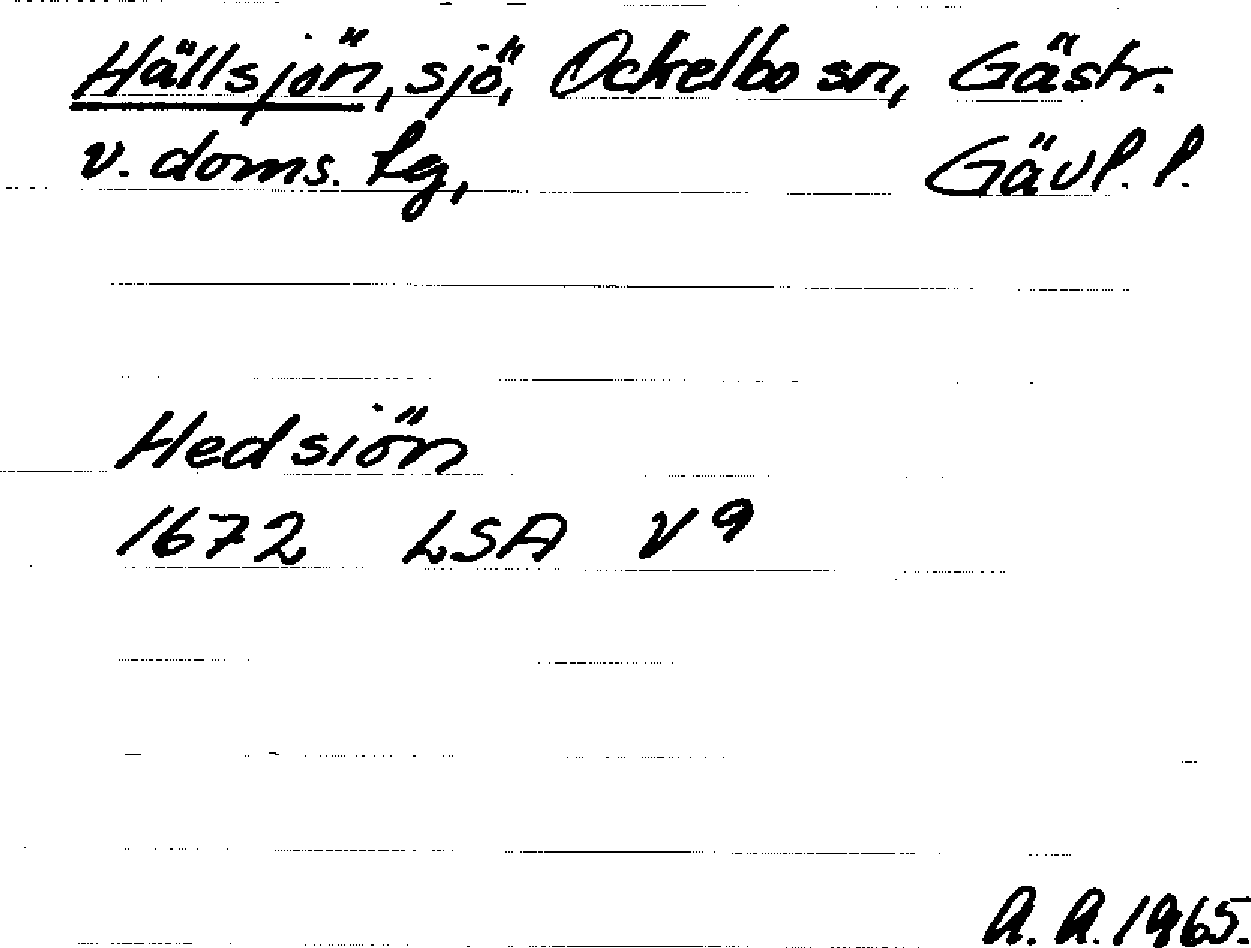 Hällsjön, sjö, Ockelbo sn, Gästr.
v. doms. lg, Gävl. l.
Hedsiön
1672 LSA V 9
A. A. 1965.